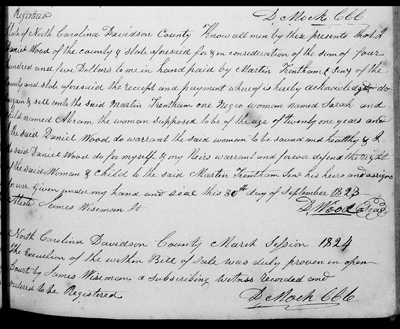 Registered D Mock CCC
State of North Carolina Davidson County Know all men by these presents that I
Daniel Wood of the county & State aforesaid for & in consideration of the sum of four
hundred and five Dollars to me in hand paid by Martin Frentham Senr of the
County and state aforesaid the receipt and payment whereof is hereby acknowledged do
bargain & sell unto the said Martin Frentham one Negro woman named Sarah and
child named Abram the woman supposed to be of the age of twenty one years and
the said Daniel Wood do warrant the said woman to be sound and healthy & I
the said Daniel Wood do for myself & my Heirs warrant and forever defend the right
of the said Woman & Child to the said Martin Frentham Senr his heirs and assigns
forever Given under my hand and seal this 30th day of September 1823
Attest James Wiseman Jr D Wood Seal
North Carolina Davidson County March Session 1824
The Execution of the within Bill of Sale was duly proven in open
Court by James Wiseman a subscribing witness recorded and
ordered to be Registered D Mock CCC